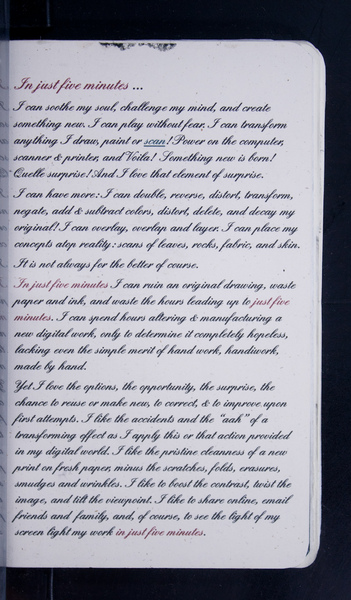 In just five minutes ...
I can soothe my soul, challenge my mind, and create
something new. I can play without fear. I can transform
anything I draw, paint or scan! Power on the computer,
scanner & printer, and Voila! Something new is born!
Quelle surprise! And I love that element of surprise.
I can have more: I can double, reverse, distort, transform,
negate, add & subtract colors, distort, delete, and decay my
original! I can overlay, overlap and layer. I can place my
concepts atop reality: scans of leaves, rocks, fabric, and skin.
It is not always for the better of course.
In just five minutes I can ruin an original drawing, waste
paper and ink, and waste the hours leading up to just five
minutes. I can spend hours altering & manufacturing a
new digital work, only to determine it completely hopeless,
lacking even the simple merit of hand work, handiwork,
made by hand.
Yet I love the options, the opportunity, the surprise, the
chance to reuse or make new, to correct, & to improve upon
first attempts. I like the accidents and the "aah" of a
transforming effect as I apply this or that action provided
in my digital world. I like the pristine cleanness of a new
print on fresh paper, minus the scratches, folds, erasures,
smudges and wrinkles. I like to boost the contrast, twist the
image, and tilt the viewpoint. I like to share online, email
friends and family, and, of course, to see the light of my
screen light my work in just five minutes.